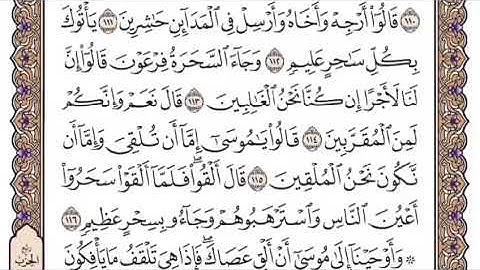 ١١٠ قَالُوٓا۟ أَرْجِهْ وَأَخَاهُ وَأَرْسِلْ فِى ٱلْمَدَآئِنِ حَٰشِرِينَ ١١١ يَأْتُوكَ
بِكُلِّ سَٰحِرٍ عَلِيمٍ ١١٢ وَجَآءَ ٱلسَّحَرَةُ فِرْعَوْنَ قَالُوٓا۟ إِنَّ
لَنَا لَأَجْرًا إِن كُنَّا نَحْنُ ٱلْغَٰلِبِينَ ١١٣ قَالَ نَعَمْ وَإِنَّكُمْ
لَمِنَ ٱلْمُقَرَّبِينَ ١١٤ قَالُوا۟ يَٰمُوسَىٰٓ إِمَّآ أَن تُلْقِىَ وَإِمَّآ أَن
نَّكُونَ نَحْنُ ٱلْمُلْقِينَ ١١٥ قَالَ أَلْقُوا۟ ۖ فَلَمَّآ أَلْقَوْا۟ سَحَرُوٓا۟
أَعْيُنَ ٱلنَّاسِ وَٱسْتَرْهَبُوهُمْ وَجَآءُو بِسِحْرٍ عَظِيمٍ ١١٦
۞ وَأَوْحَيْنَآ إِلَىٰ مُوسَىٰٓ أَنْ أَلْقِ عَصَاكَ ۖ فَإِذَا هِىَ تَلْقَفُ مَا يَأْفِكُونَ
ربع
الحزب